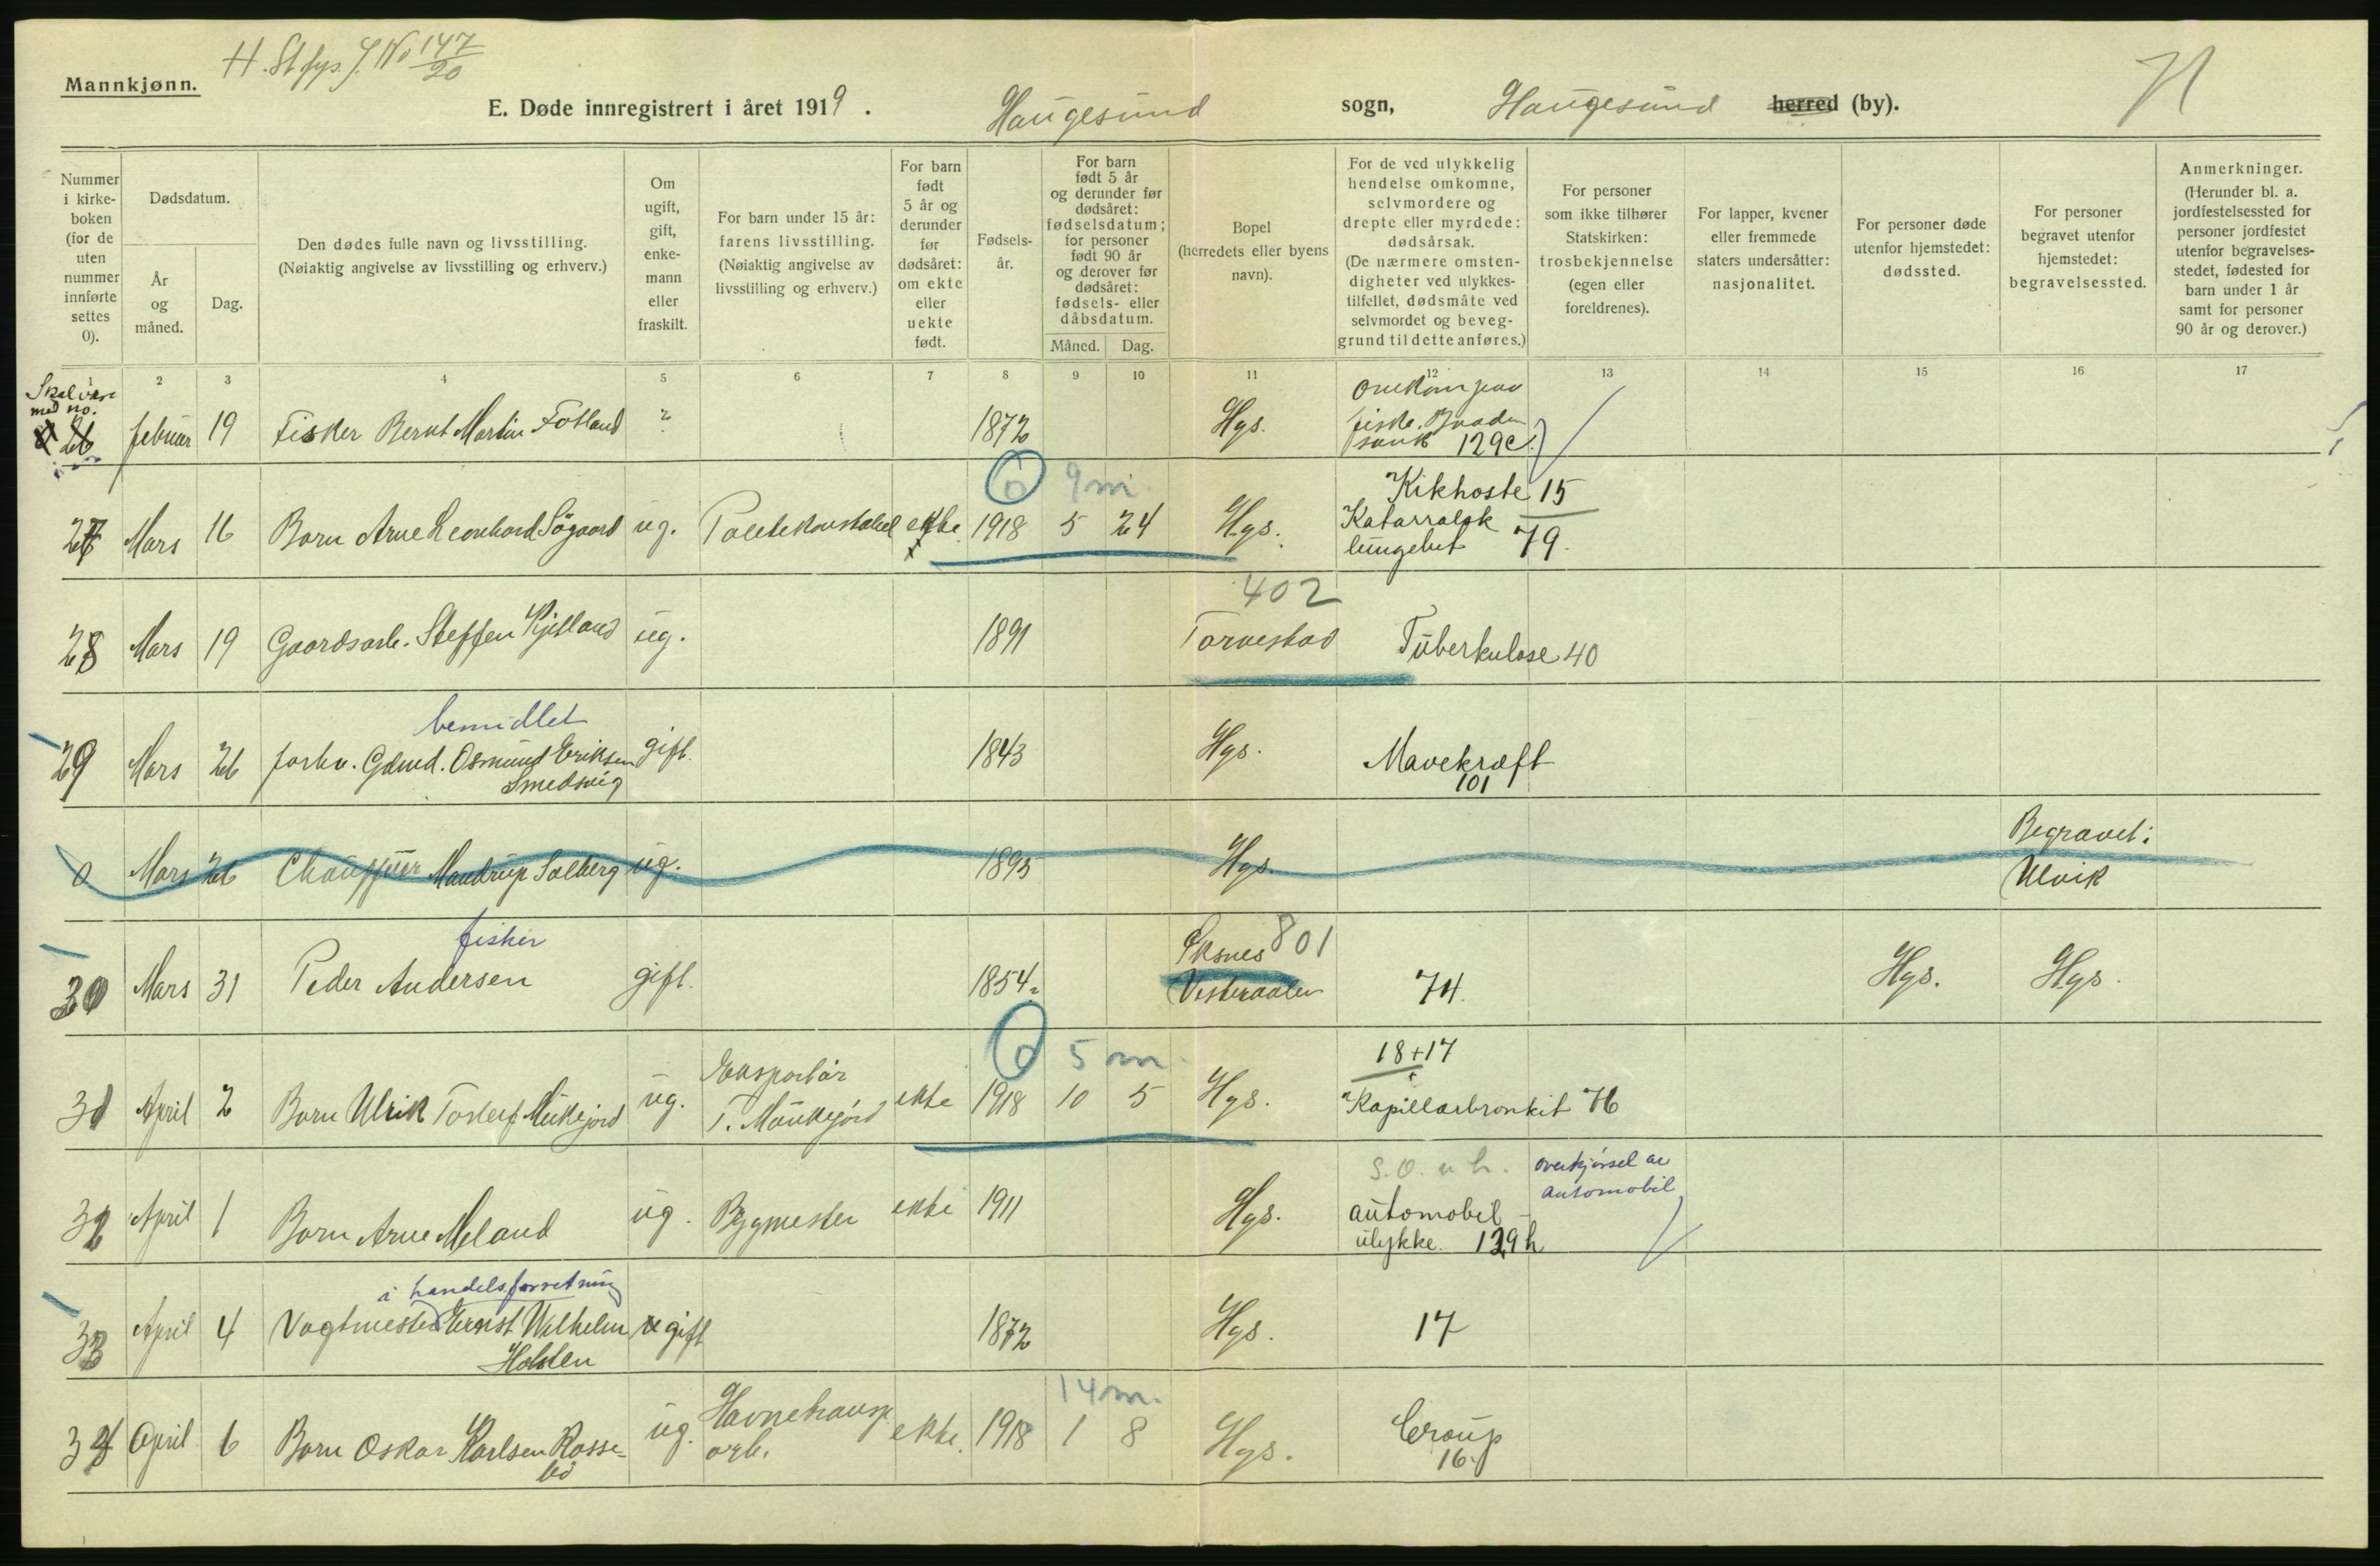 H. St.fys. J. No 147/20
71
Mannkjønn.
E. Døde innregistrert i året 1919. Haugesund sogn, Haugesund herred (by).
Nummer i kirkeboken (for de uten nummer innførte settes 0).
Dødsdatum.
År og måned.
Dag.
Den dødes fulle navn og livsstilling. (Nøiaktig angivelse av livsstilling og erhverv.)
Om ugift, gift, enkemann eller fraskilt.
For barn under 15 år: farens livsstilling. (Nøiaktig angivelse av livsstilling og erhverv.)
For barn født 5 år og derunder før dødsåret: om ekte eller uekte født.
Fødselsår.
For barn født 5 år og derunder før dødsåret: fødselsdatum; for personer født 90 år og derover før dødsåret: fødsels- eller dåbsdatum.
Måned. Dag.
Bopel (herredets eller byens navn).
For de ved ulykkelig hendelse omkomne, selvmordere og drepte eller myrdede: dødsårsak. (De nærmere omstendigheter ved ulykkestilfellet, dødsmåte ved selvmordet og beveggrund til dette anføres.)
For personer som ikke tilhører Statskirken: trosbekjennelse (egen eller foreldrenes).
For lapper, kvener eller fremmede staters undersåtter: nasjonalitet.
For personer døde utenfor hjemstedet: dødssted.
For personer begravet utenfor hjemstedet: begravelsessted.
Anmerkninger. (Herunder bl. a. jordfestelsessted for personer jordfestet utenfor begravelsesstedet, fødested for barn under 1 år samt for personer 90 år og derover.)
1 2 3 4 5 6 7 8 9 10 11 12 13 14 15 16 17
Skal være med no.
26 februar 19 Fisker Bernt Martin Fotland ? 1872 Hgs. omkom paa fiske. Baaden sank 129c
0 9 m.
27 Mars 16 Barn Arne Leonhard Søgaard ug. Politikonstabel ekte 1918 5 24 Hgs. Kikhoste 15 Katarralsk lungebet 79.
402
28 Mars 19 Gaardsarb. Steffen Kjetland ug. 1891 Torvestad Tuberkulose 40
bemidlet
29 Mars 26 forhv. Gdmd. Osmund Eriksen Smedsvig gift. 1843 Hgs. Mavekræft 101
0 Mars 26 Chauffuer Mandrup Solberg ug. 1895 Hgs. Begravet: Ulvik
fisker
30 Mars 31 Peder Andersen gift. 1854 Øksnes 801 Vesteraalen 74. Hgs. Hgs.
0 5 m.
31 April 2 Barn Ulrik Tollef Munkejord ug. Exsportør T. Munkejord ekte 1918 10 5 Hgs. 18+17 Kapillarbronkit 76
32 April 1 Barn Arne Meland ug. Bygmester ekte 1911 Hgs. S. O. u h. automobilulykke. 129h overkjørsel av automobil
i handelsforretning
33 April 4 Vagtmester Ernst Wilhelm Holsten gift 1872 Hgs. 17
14 m.
34 April 6 Barn Oskar Karlsen Rossebø ug. Havnetransp. arb. ekte. 1918 1 8 Hgs. Croup 16.